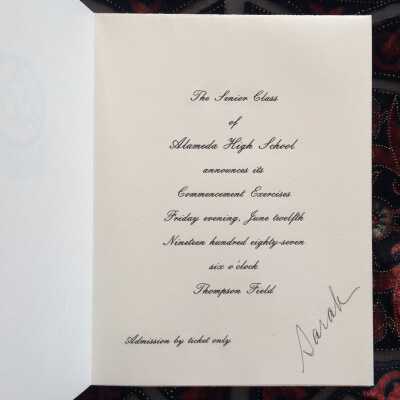 The Senior Class
of
Alameda High School
announces its
Commencement Exercises
Friday evening, June twelfth
Nineteen hundred eighty-seven
six o'clock
Thompson Field
Admission by ticket only
Sarah